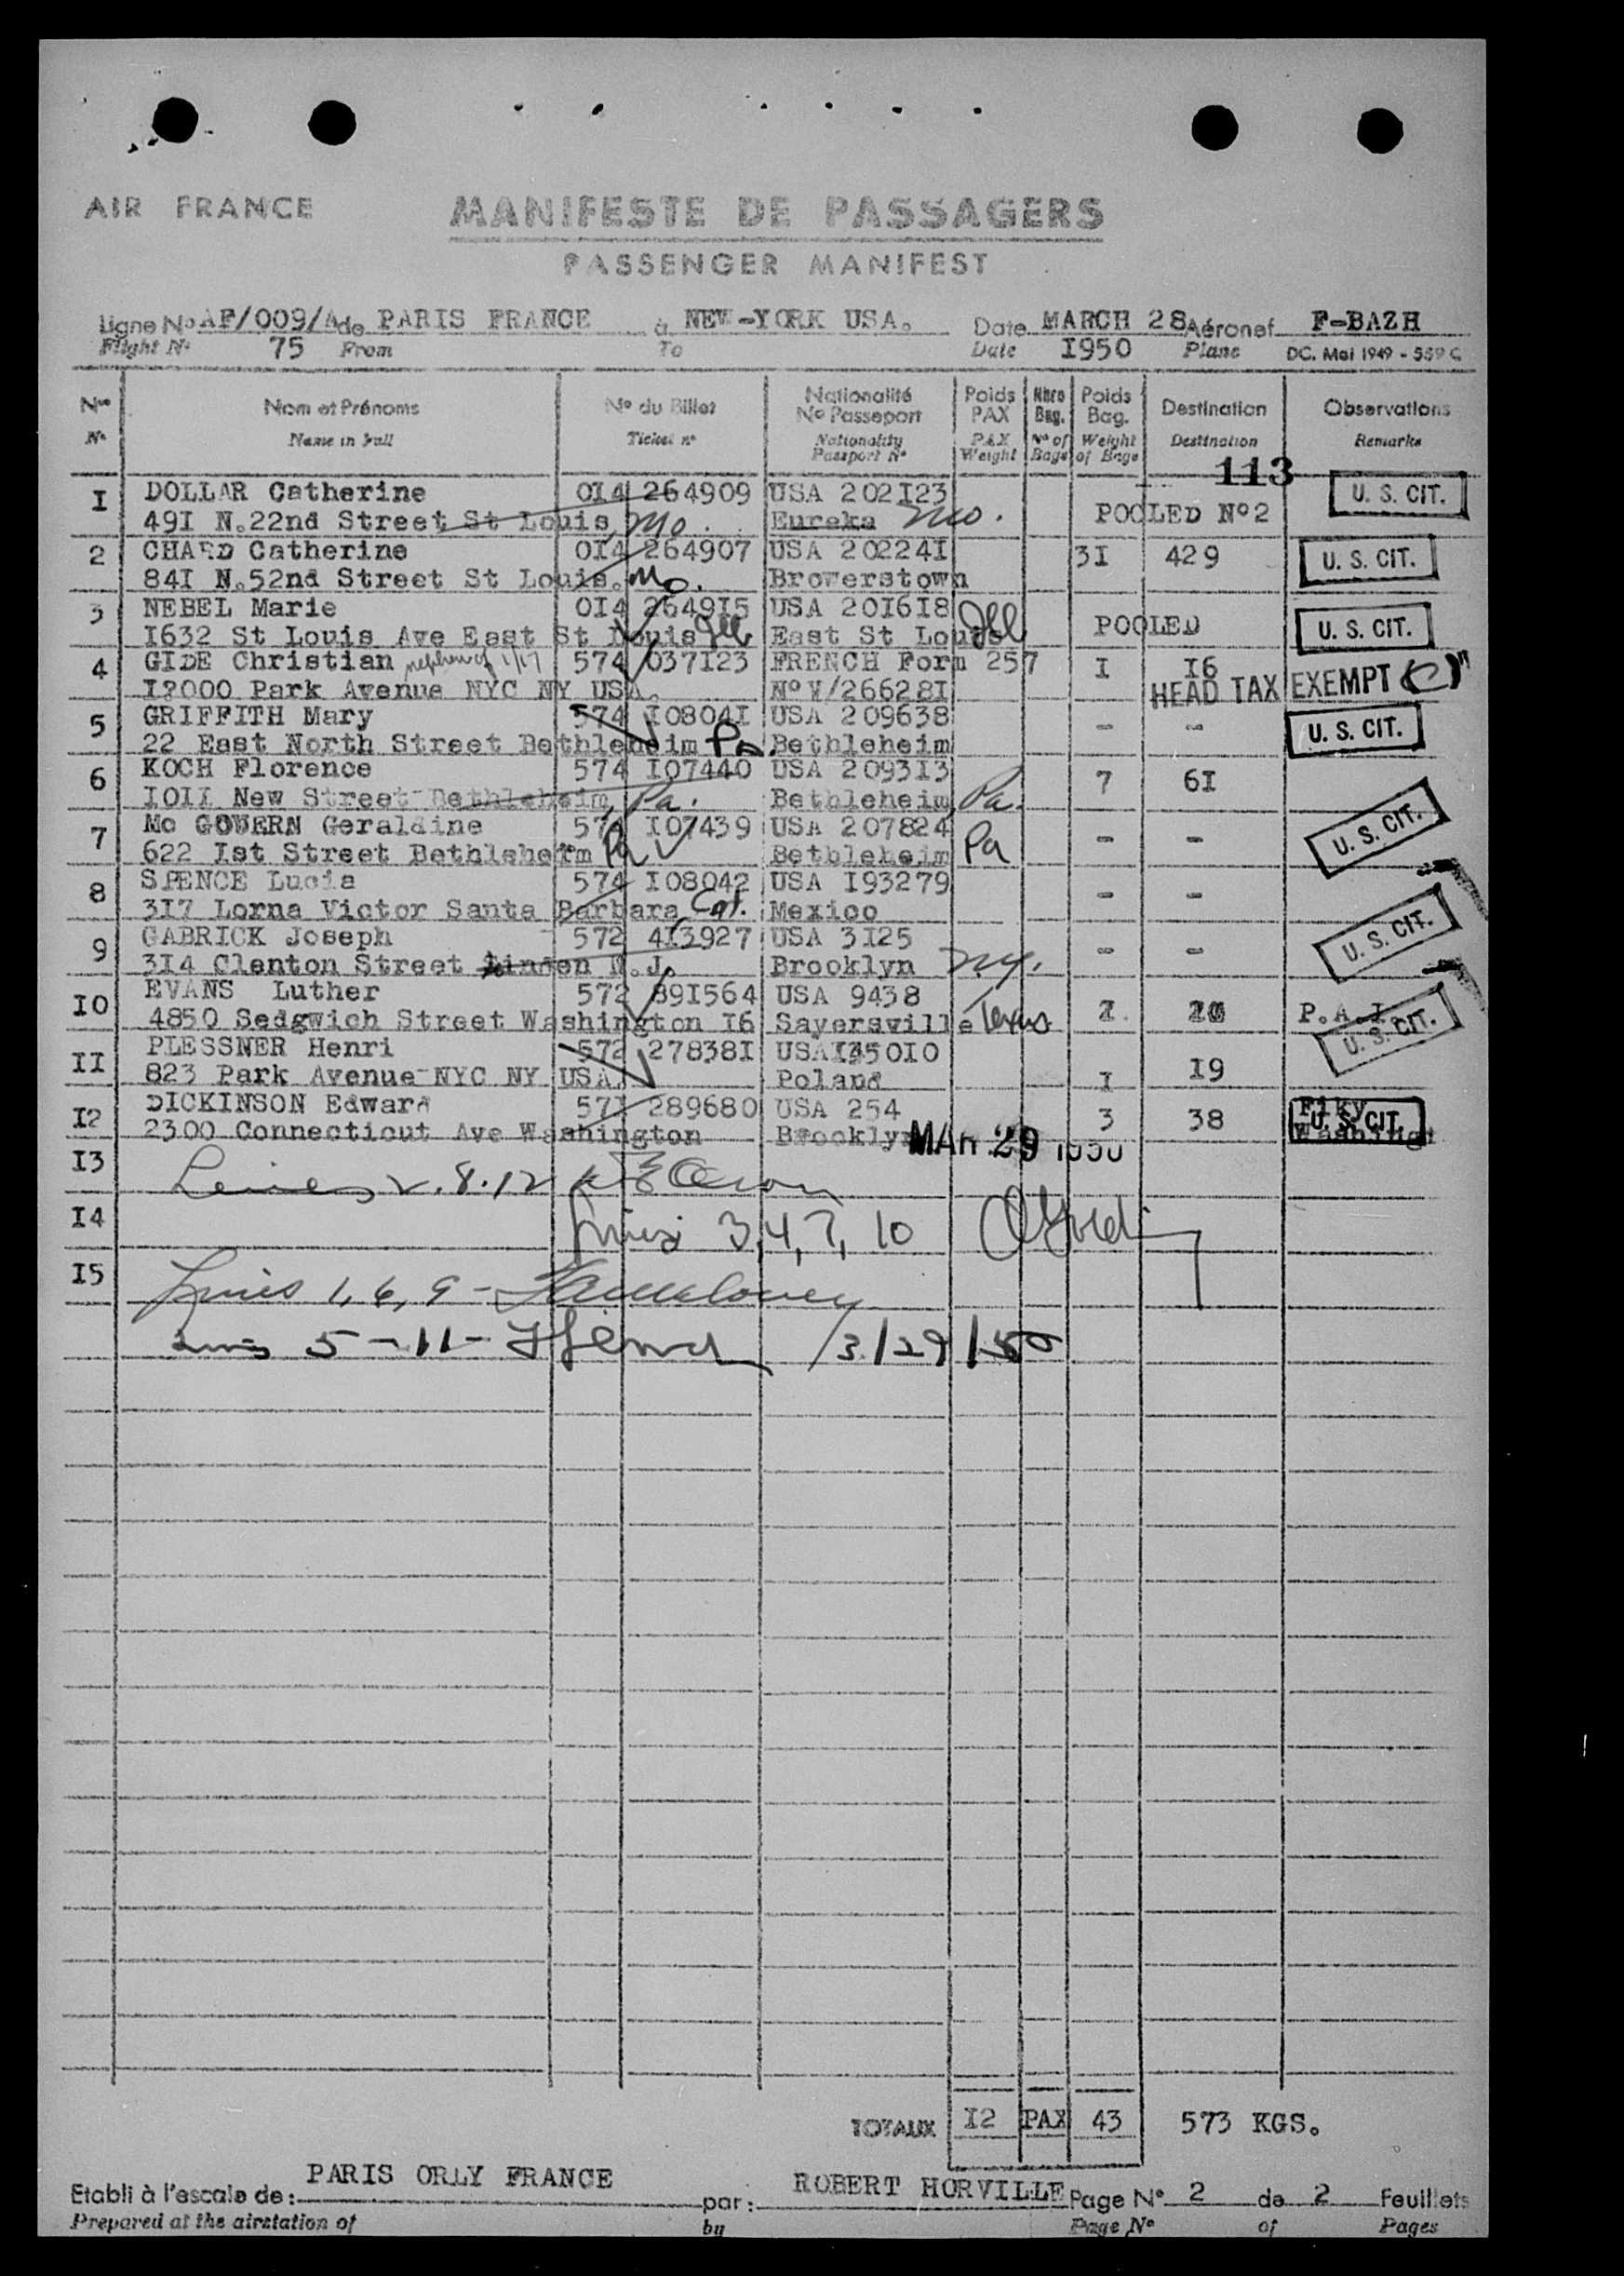 AIR FRANCE MANIFESTE DE PASSAGERS
PASSENGER MANIFEST
Ligne No AF/009/A de PARIS FRANCE à NEW-YORK USA. Date MARCH 28 Aéronef F-BAZH
Flight No 75 From To Date I950 Plane DC. Mai 1949 - 559 C
Nos Nom et Prénoms No du Billet Nationalité No Passeport Poids PAX Nbre Bag. Poids Bag. Destination Observations
No Name in Full Ticket no Nationality Passport No PAX Weight No of Bags Weight of Bags Destination Remarks
113
I DOLLAR Catherine 0I4 264909 USA 202I23 POOLED No2 U. S. CIT.
49I N.22nd Street St Louis, Mo. Eureka Mo.
2 CHARD Catherine 0I4 264907 USA 20224I 3I 429 U. S. CIT.
84I N.52nd Street St Louis. Mo. Browerstown
3 NEBEL Marie 0I4 2649I5 USA 20I6I8 POOLED U. S. CIT.
I632 St Louis Ave East St Louis Ill East St Louis Ill
4 GIDE Christian 574 037I23 FRENCH Form 257 I I6
I2000 Park Avenue NYC NY USA. No V/26628I HEAD TAX EXEMPT
5 GRIFFITH Mary 574 I0804I USA 209638 - - U. S. CIT.
22 East North Street Bethleheim Pa. Bethleheim
6 KOCH Florence 574 I07440 USA 2093I3 7 6I
I0II New Street Bethleheim, Pa. Bethleheim, Pa.
7 Mc GOVERN Geraldine 574 I07439 USA 207824 - - U. S. CIT.
622 Ist Street Bethleheim Pa Bethleheim Pa
8 SPENCE Lucia 574 I08042 USA I93279 - -
3I7 Lorna Victor Santa Barbara Cal. Mexico
9 GABRICK Joseph 572 4I3927 USA 3I25 - - U. S. CIT.
3I4 Clenton Street Linden N.J. Brooklyn N.Y.
I0 EVANS Luther 572 89I564 USA 9438 P.A.I.
4850 Sedgwich Street Washington I6 Sayersville Texas U. S. CIT.
II PLESSNER Henri 572 27838I USA I350I0 I I9
823 Park Avenue NYC NY USA. Poland
I2 DICKINSON Edward 57I 289680 USA 254 3 38 U. S. CIT.
2300 Connecticut Ave Washington Brooklyn MAR 29 1950
I3 Lines 2.8.12
I4 Lines 3,4,7,10
I5 Lines 1,6,9 -
Lines 5-11- 3/29/50
TOTAUX I2 PAX 43 573 KGS.
Etabli à l'escale de: PARIS ORLY FRANCE par: ROBERT HORVILLE Page No 2 de 2 Feuillets
Prepared at the airstation of by Page No of Pages